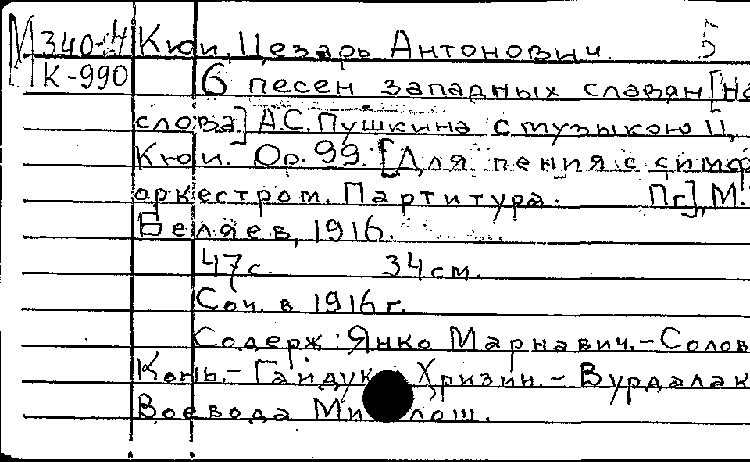 М 340-4 Кюи, Цезарь Антонович.
К-990 6 песен западных славян [На
слова] А.С. Пушкина с музыкою Ц.
Кюи. Op. 99. [Для пения с симф
оркестром. Партитура. Пг], М.
Беляев, 1916.
47с. 34см.
Соч. в 1916 г.
Содерж: Янко Марнавич.-Солов
Конь.- Гайдук Хризич.- Вурдалак
Воевода